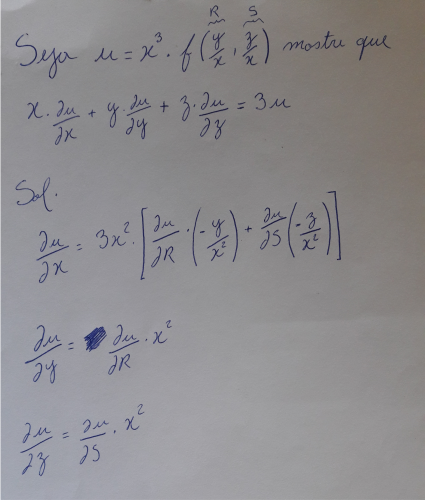 R S
Seja u = x³ · f(y/x, z/x) mostre que
x · ∂u/∂x + y · ∂u/∂y + z · ∂u/∂z = 3u
Sol.
∂u/∂x = 3x² · [∂u/∂R · (-y/x²) + ∂u/∂S (-z/x²)]
∂u/∂y = ∂u/∂R · x²
∂u/∂z = ∂u/∂S · x²